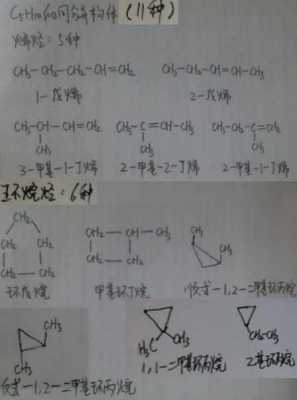 C₅H₁₀的同分异构体 (11种)
烯烃：5种
CH₃-CH₂-CH₂-CH=CH₂ CH₃-CH₂-CH=CH-CH₃
1-戊烯 2-戊烯
CH₃-CH-CH=CH₂ CH₃-C=CH-CH₃ CH₃-CH₂-C=CH₂
CH₃ CH₃ CH₃
3-甲基-1-丁烯 2-甲基-2-丁烯 2-甲基-1-丁烯
环烷烃：6种
CH₂ CH₂-CH-CH₃ CH₃
CH₂ CH₂ CH₂-CH₂ CH₃
CH₂-CH₂
环戊烷 甲基环丁烷 顺式-1,2-二甲基环丙烷
CH₃
CH₃ H₃C CH₃ CH₂-CH₃
反式-1,2-二甲基环丙烷 1,1-二甲基环丙烷 乙基环丙烷